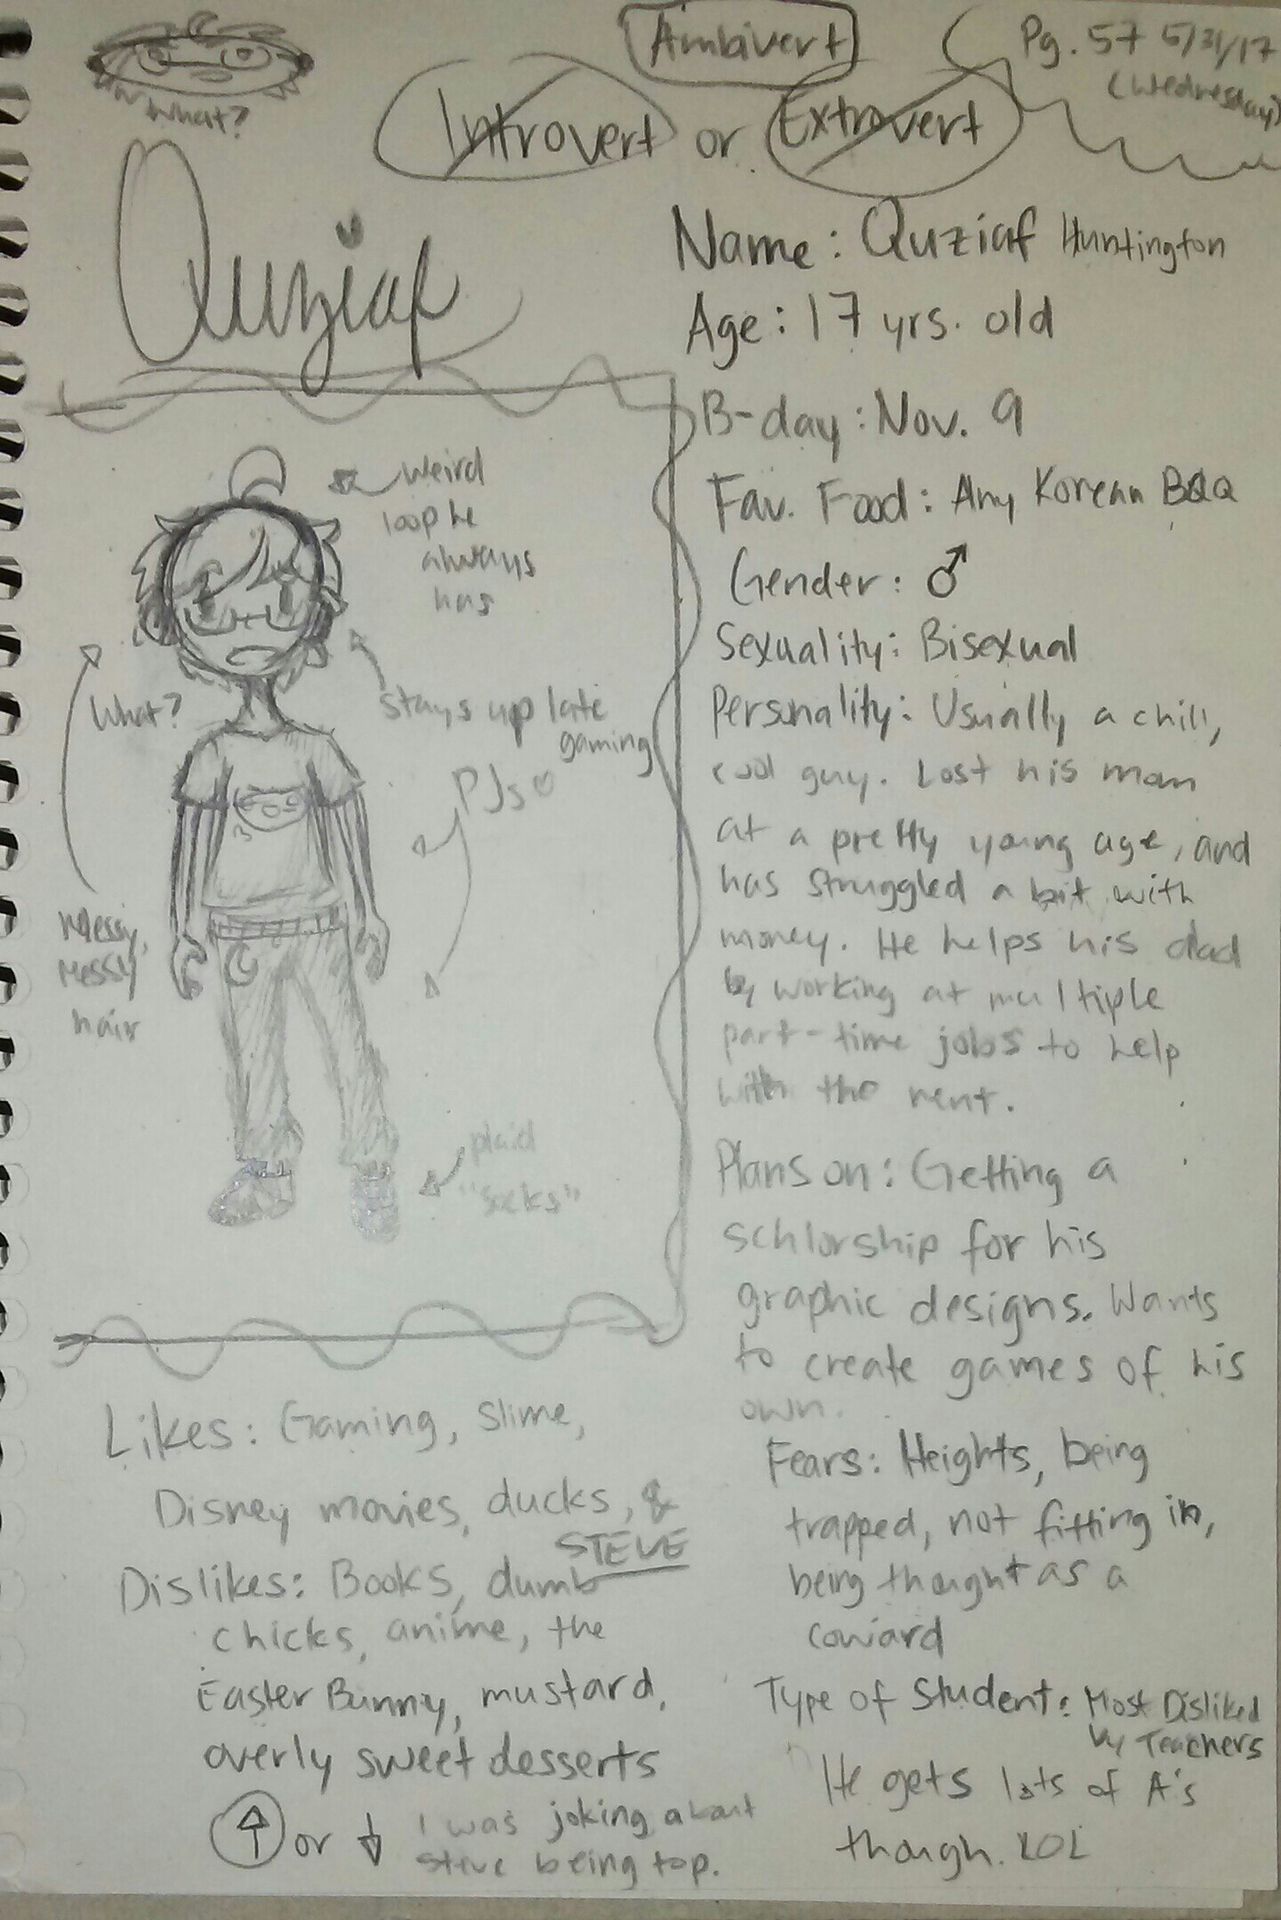 What?
Ambivert
Introvert or Extrovert
Pg. 57 5/31/17
(Wednesday)
Quziaf
Name: Quziaf Huntington
Age: 17 yrs. old
B-day: Nov. 9
Fav. Food: Any Korean BBQ
Gender: ♂
Sexuality: Bisexual
Personality: Usually a chill,
cool guy. Lost his mom
at a pretty young age, and
has struggled a bit with
money. He helps his dad
by working at multiple
part-time jobs to help
with the rent.
Plans on: Getting a
schlorship for his
graphic designs. Wants
to create games of his
own.
Fears: Heights, being
trapped, not fitting in,
being thought as a
coward
Type of Student: Most Disliked
by Teachers
He gets lots of A's
though. LOL
Weird
loop he
always
has
What?
Stays up late
gaming
PJs
Messy,
Messy
hair
plaid
"socks"
Likes: Gaming, Slime,
Disney movies, ducks, &
STEVE
Dislikes: Books, dumb
chicks, anime, the
Easter Bunny, mustard,
overly sweet desserts
↑ or ↓ I was joking about
Steve being top.